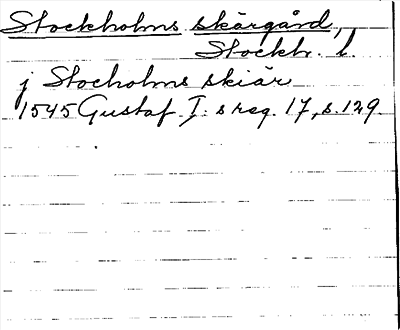 Stockholms skärgård,
Stockh. l.
j Stocholms skiär
1545 Gustaf I:s reg. 17, s. 129.